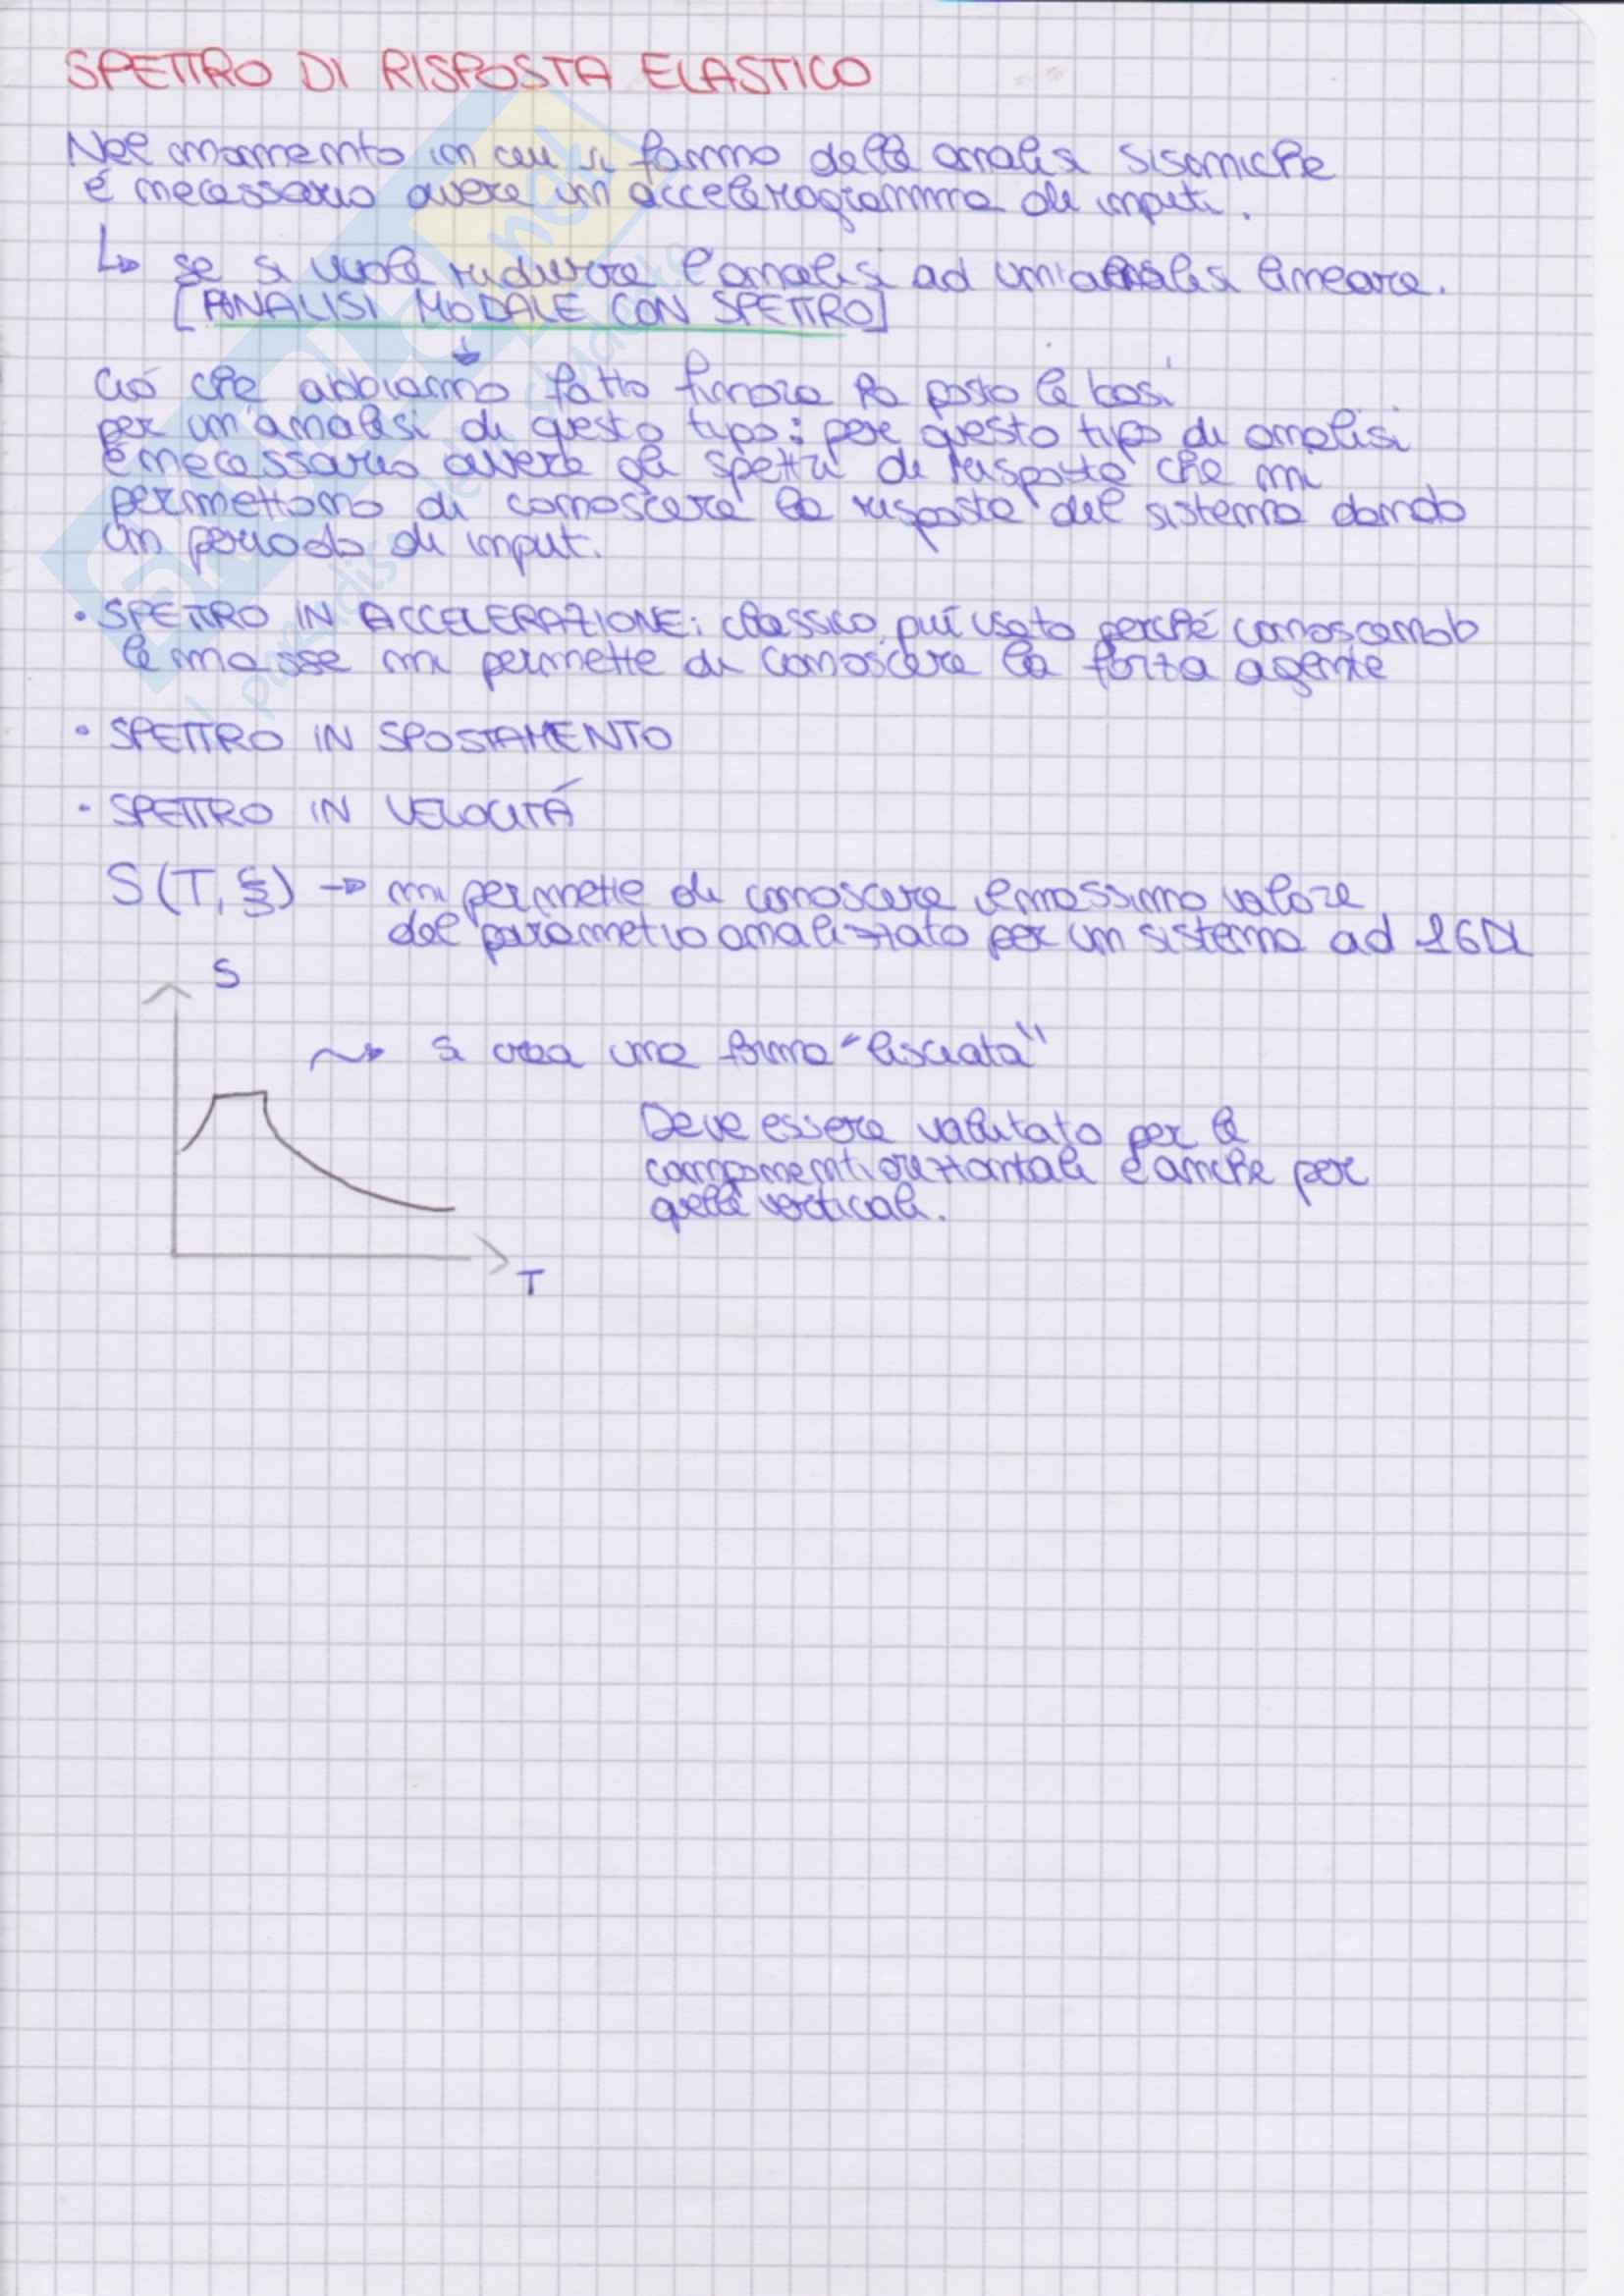 SPETTRO DI RISPOSTA ELASTICO
Nel momento in cui si fanno delle analisi sismiche
è necessario avere un accelerogramma di input.
↳ se si vuole ridurre l'analisi ad un'analisi lineare.
[ANALISI MODALE CON SPETTRO]
Ció che abbiamo fatto finora ha posto le basi
per un'analisi di questo tipo: per questo tipo di analisi
è necessario avere gli spettri di risposta che mi
permettono di conoscere la risposta del sistema dando
un periodo di input.
• SPETTRO IN ACCELERAZIONE: classico, piú usato perché conoscendo
le masse mi permette di conoscere la forza agente
• SPETTRO IN SPOSTAMENTO
• SPETTRO IN VELOCITÁ
S(T, ξ) → mi permette di conoscere il massimo valore
del parametro analizzato per un sistema ad 1GDL
S
si crea una forma "lisciata"
Deve essere valutato per le
componenti orizzontali e anche per
quelle verticali.
T